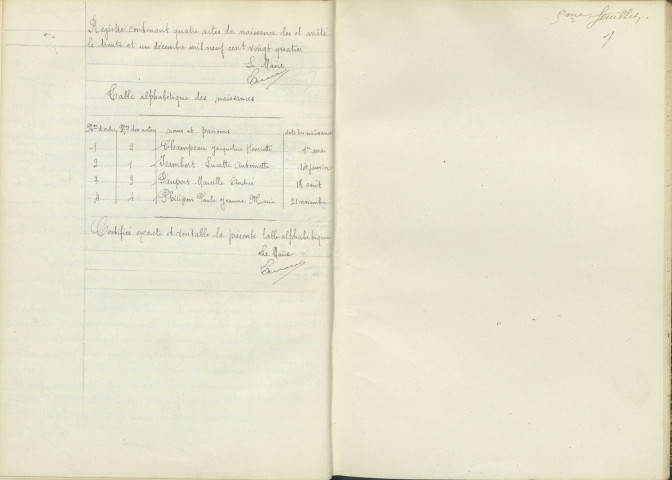 Registre contenant quatre actes de naissance clos et arrêté
le trente et un décembre mil neuf cent vingt quatre
Le Maire
Table alphabétique des naissances
Nos d'ordre Nos des actes noms et prénoms date des naissances
1 2 Champeau Jacqueline Henriette 1er mai
2 1 Jambert Lucette Antoinette 14 janvier
3 3 Paupert Marcelle Andrée 18 août
4 4 Philipon Paule Jeanne Marie 21 novembre
Certifiée exacte et véritable la présente table alphabétique
Le Maire
5eme feuillet